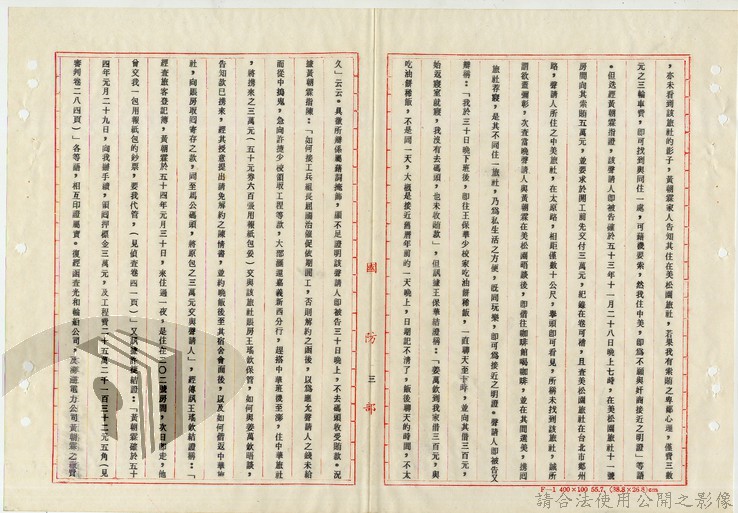 ，亦未看到該旅社的影子，黃朝霖家人告知其住在美松園旅社，若果我有索賄之卑鄙心理，僅費三數
元之三輪車費，卽可找到與同住一處，可藉機要索，然我住中美，卽爲不願與奸商接近之明證」等語
。但迭經黃朝霖指證，該聲請人卽被告確於五十三年十一月二十八日晚上七時，在美松園旅社十一號
房間向其索賄五萬元，並要求於開工前先交付三萬元，紀錄在卷可稽，且查美松園旅社在台北市鄭州
路，聲請人所住之中美旅社，在太原路，相距僅數十公尺，舉頭卽可看見，所稱未找到該旅社，誠所
謂欲蓋彌彰，次查當晚聲請人與黃朝霖在美松園晤談後，卽偕往咖啡館喝咖啡，並在其間選美，携囘
旅社荐寢，是其不同住一旅社，乃爲私生活之方便，旣同玩樂，卽可爲接近之明證。聲請人卽被告又
辯稱：「我於三十日晚下班後，卽往王保華少校家吃油餅稀飯，一直聊天至十時，並向其借三百元，
始返寢室就寢，我沒有去碼頭，也未收賄款」，但訊據王保華結證稱：「姜萬欽到我家借三百元，與
吃油餅稀飯，不是同一天，大概是接近舊曆年前的一天晚上，日期記不清了，飯後聊天約時間，不太
久」云云。具徵所辯係屬藉詞掩飾，顯不足證明該聲請人卽被告三十日晚上，不去碼頭收受賄款。况
據黃朝霖指陳：「如何接工兵組長顧國治催促依期開工，否則解約之函後，以爲應允聲請人之錢未給
而從中搗鬼，急向許捷少校領取工程等款，大部滙還嘉義新西分行，趕搭中華班機至澎，住中華旅社
，將携來之三萬元（五十元劵六百張用報紙包妥）交與該旅社賬房王瑤欽保管，如何與姜萬欽晤談，
告知款已携來，經其授意提出請免解約之陳情書，並約晚飯後至其宿舍會面後，以及如何偕返中華旅
社，向賬房取囘寄存之款，同至馬公碼頭，將原包之三萬元交與聲請人」，經傳訊王瑤欽結證稱：「
經查旅客登記簿，黃朝霖於五十四年元月三十日，來住過一夜，是住在二〇二號房間，次日卽走，他
曾交我一包用報紙包的鈔票，要我代管，（見偵查卷四一頁）」又訊據許捷結證：「黃朝霖確於五十
四年元月二十九日，向我辦手續，領囘押標金三萬元，及工程費二十五萬二千一百三十二元五角（見
審判卷二八四頁）」各等語，相互印證屬實。復經函查光和輪船公司，及澎湖電力公司黃朝霖之
國防部
三
F—1 400×100 55.7. (38.8×26.8)cm
請合法使用公開之影像